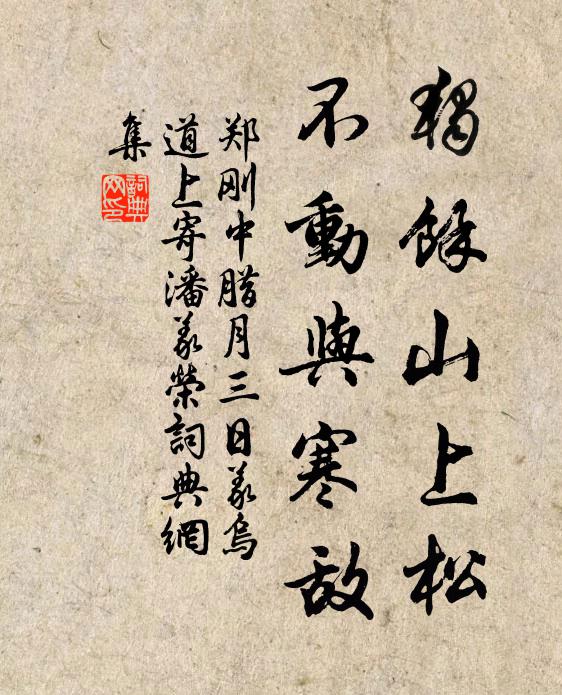 獨餘山上松
不動與寒敵
郑刚中腊月三日义烏
道上寄潘义榮詞典網
集
詞典
网印